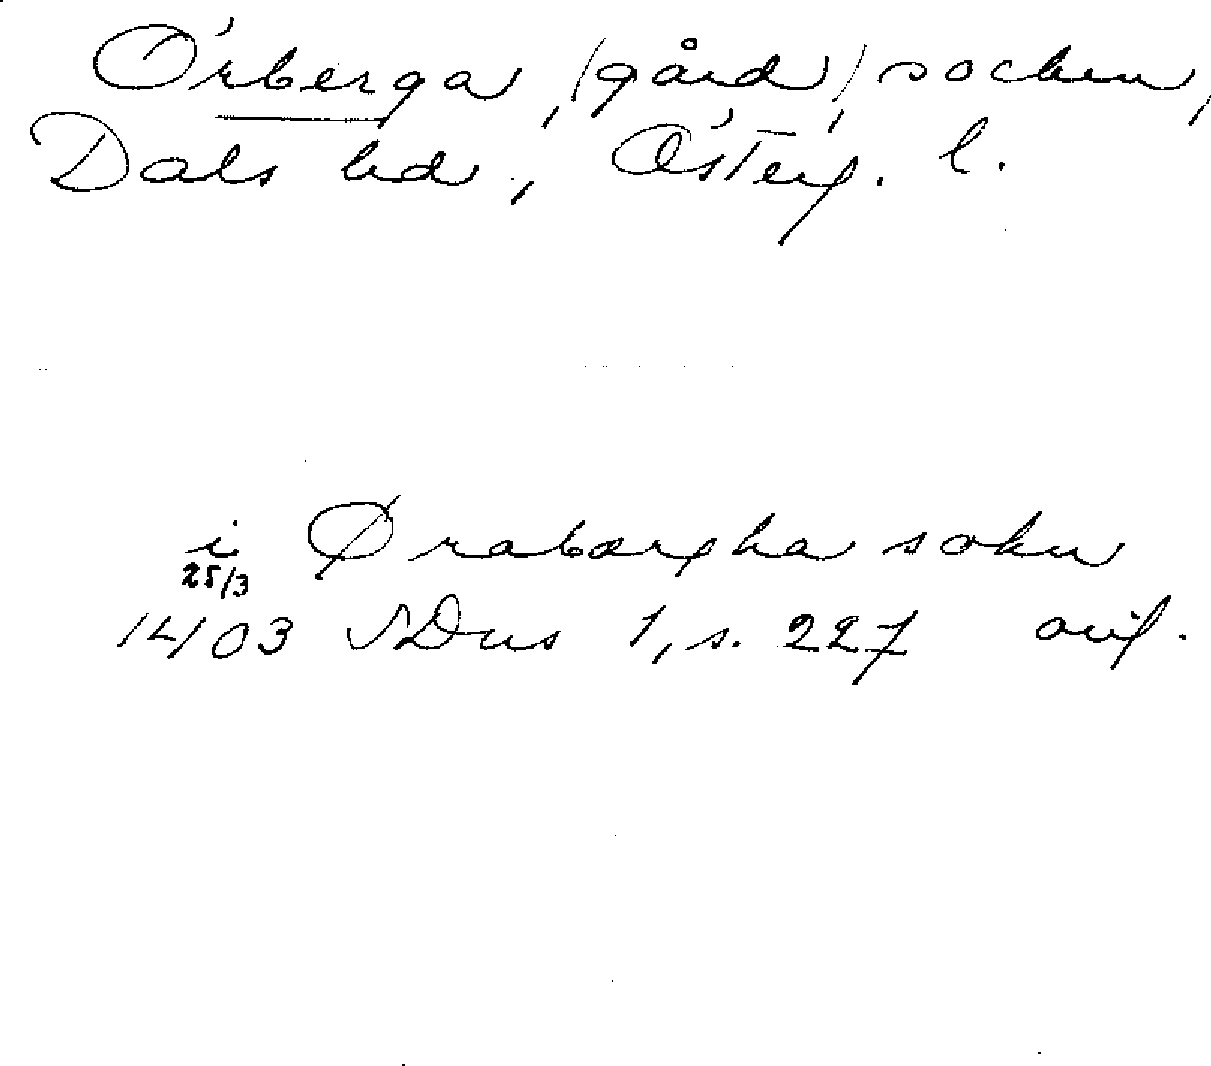 Örberga, (gård), socken,
Dals hd, Österg. l.
i Ørabærgha sokn
25/3
1403 SDns 1, s. 227 avif.